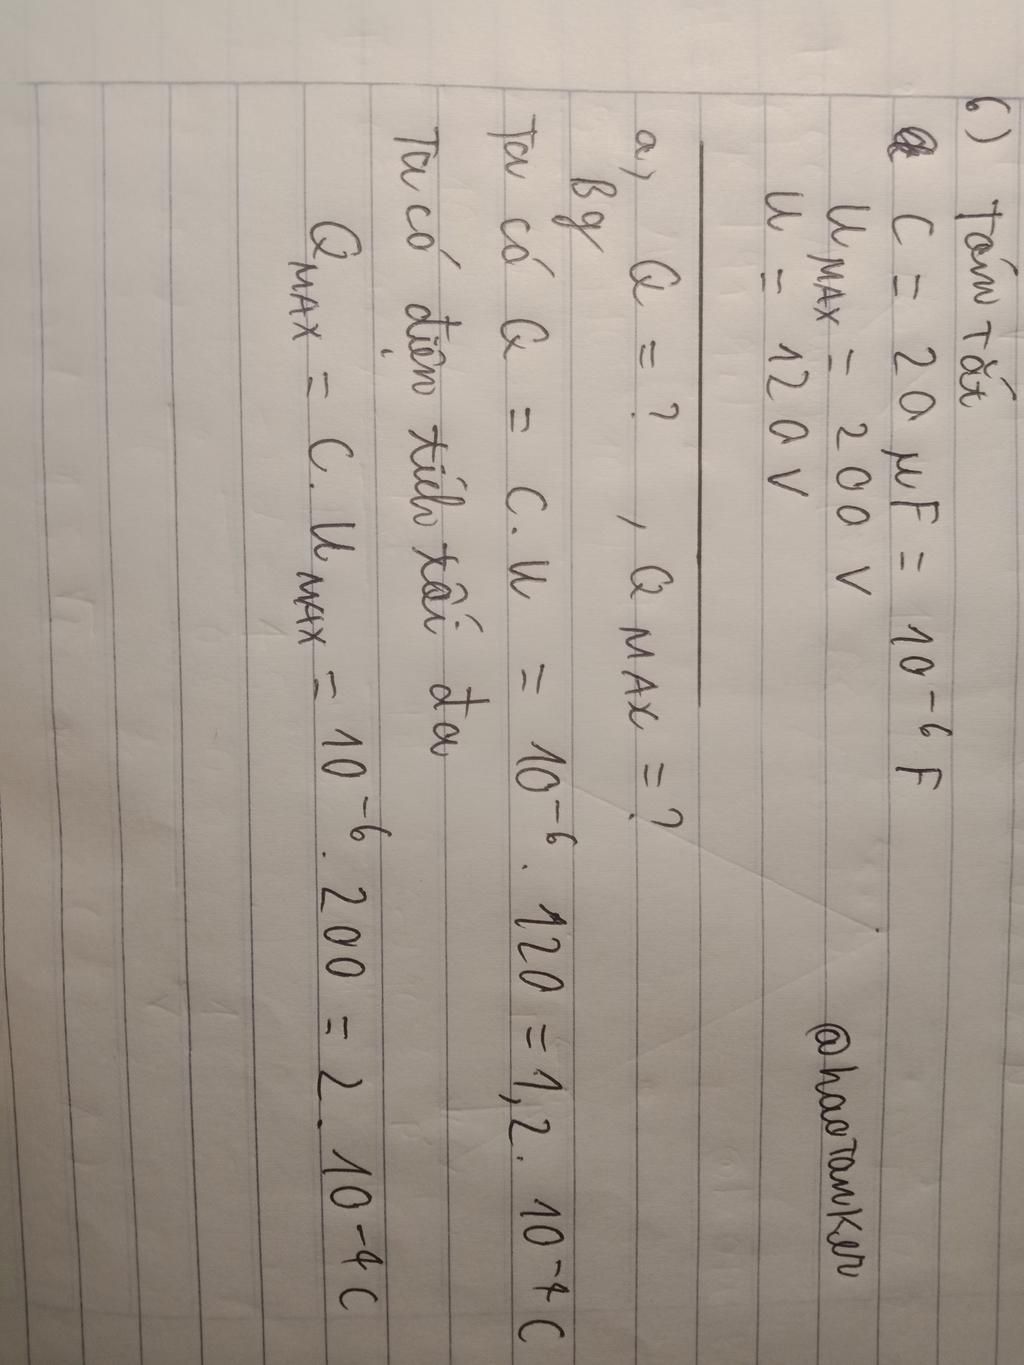 6) Tóm tắt
C = 20 μF = 10⁻⁶ F
U MAX = 200 V
U = 120 V
@haotanker
a, Q = ? , Q MAX = ?
Bg
Ta có Q = C.U = 10⁻⁶ . 120 = 1,2. 10⁻⁴ C
Ta có điện tích tối đa
Q MAX = C.U MAX = 10⁻⁶ . 200 = 2. 10⁻⁴ C